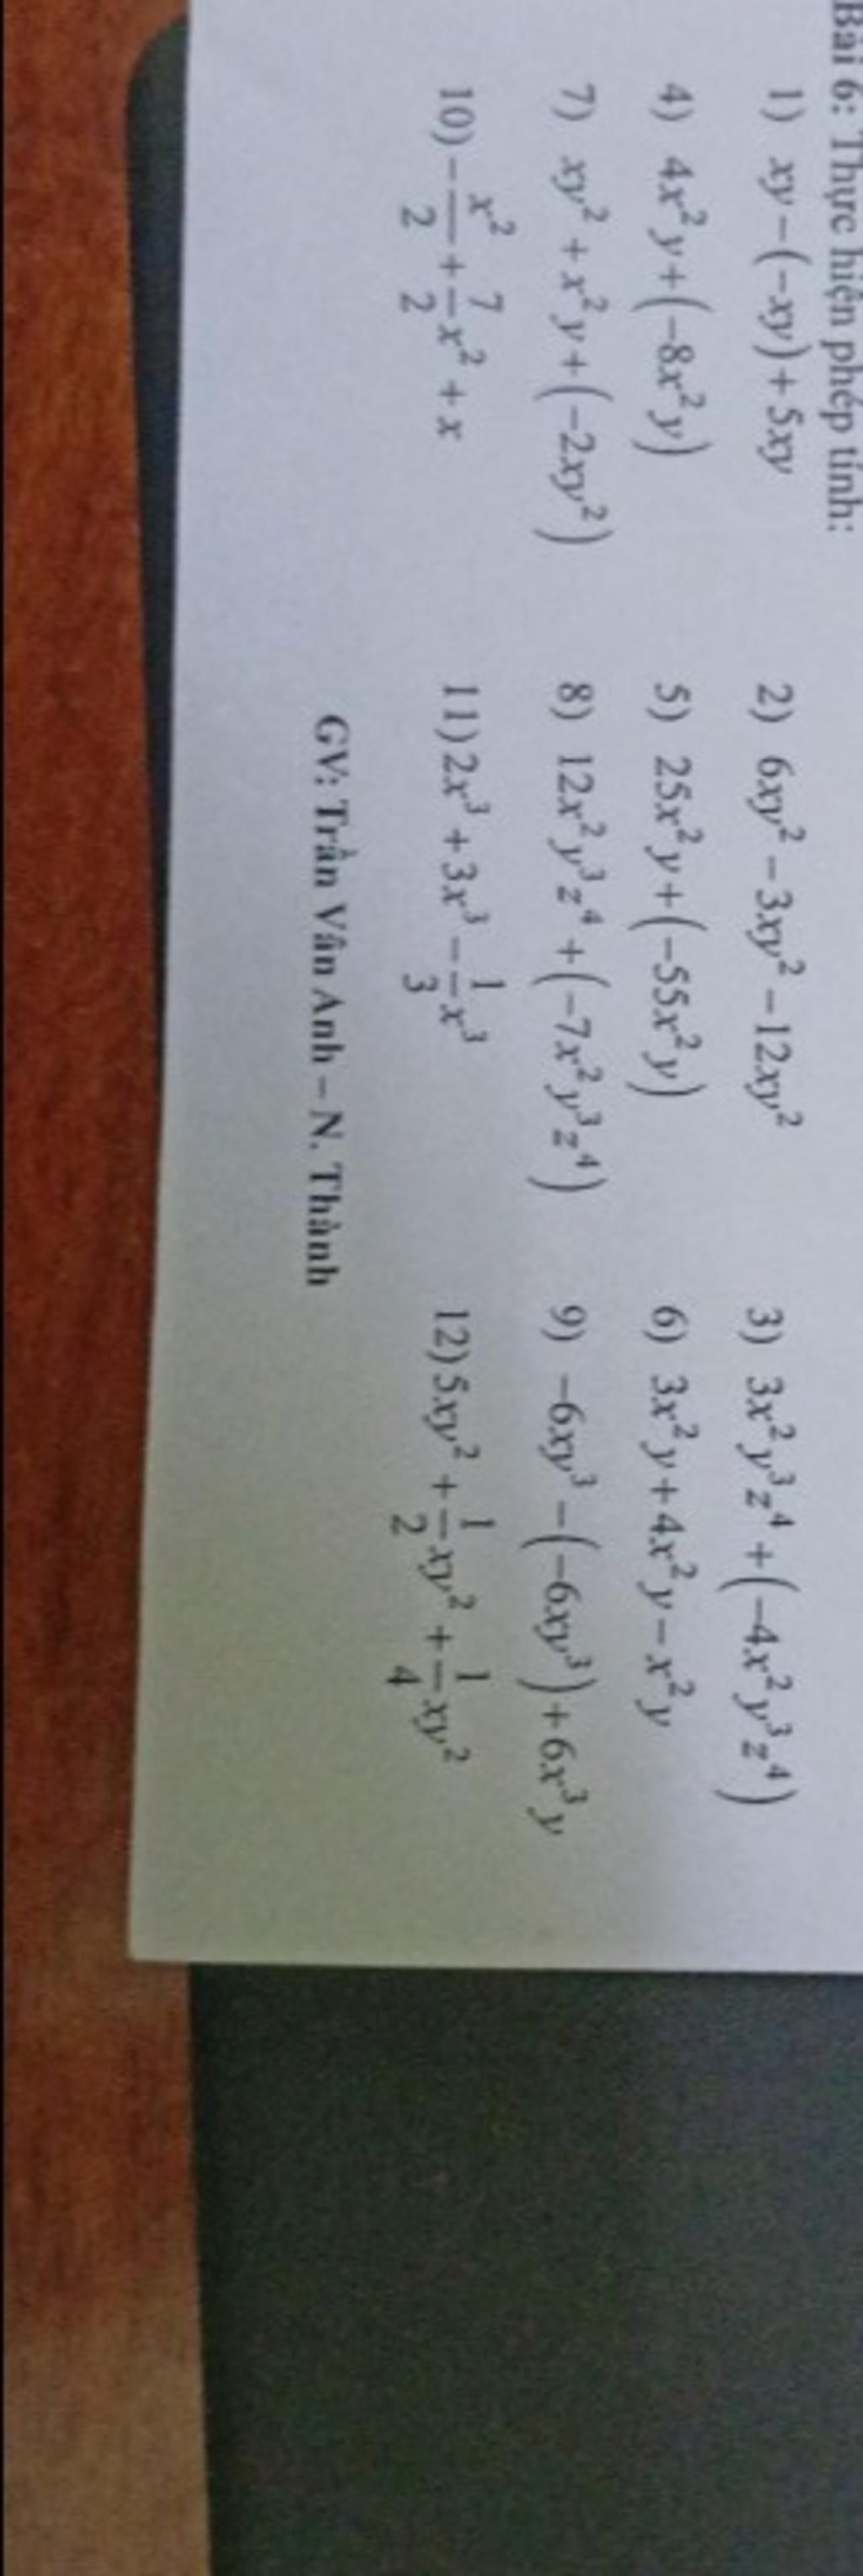 Bài 6: Thực hiện phép tính:
1) xy − (−xy) + 5xy 2) 6xy² − 3xy² − 12xy² 3) 3x²y³z⁴ + (−4x²y³z⁴)
4) 4x²y + (−8x²y) 5) 25x²y + (−55x²y) 6) 3x²y + 4x²y − x²y
7) xy² + x²y + (−2xy²) 8) 12x²y³z⁴ + (−7x²y³z⁴) 9) −6xy³ − (−6xy³) + 6x³y
10) −x²/2 + 7/2 x² + x 11) 2x³ + 3x³ − 1/3 x³ 12) 5xy² + 1/2 xy² + 1/4 xy²
GV: Trần Vân Anh – N. Thành